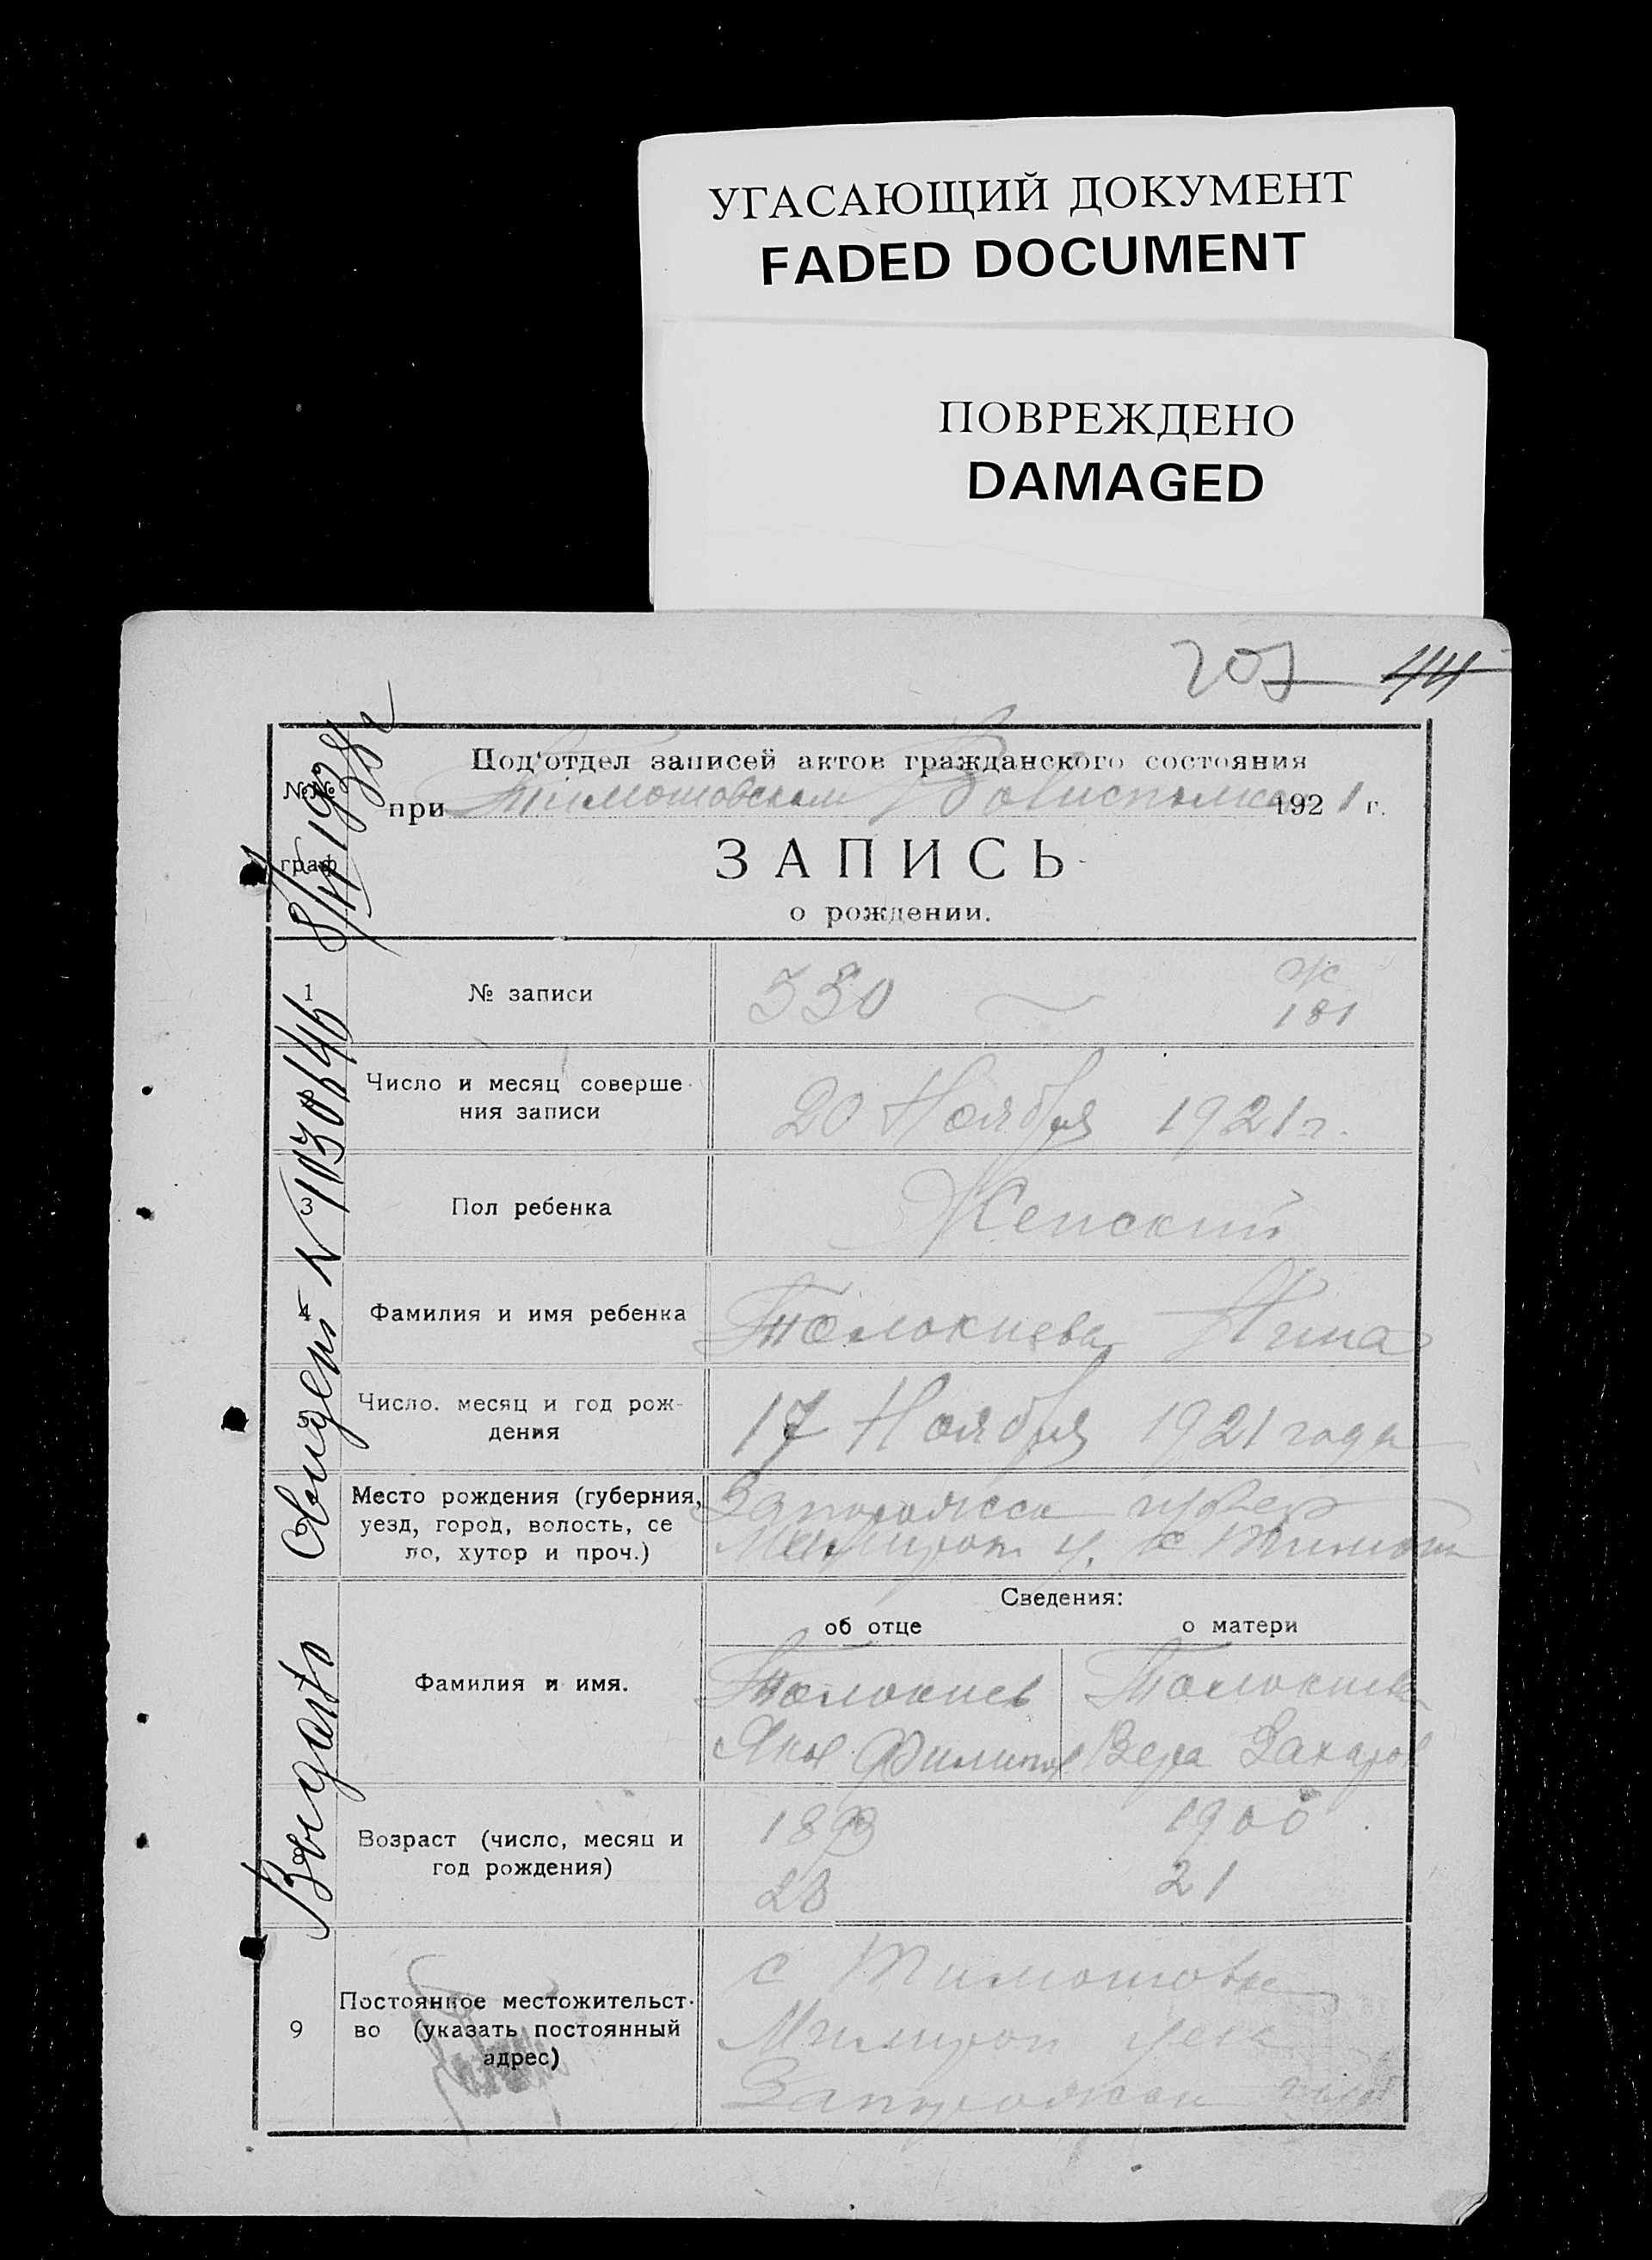 УГАСАЮЩИЙ ДОКУМЕНТ
FADED DOCUMENT
ПОВРЕЖДЕНО
DAMAGED
207 44
Под'отдел записей актов гражданского состояния
№№ граф
при Тимошовском Волисполкоме 1921 г.
ЗАПИСЬ
о рождении.
1 № записи 530 Ж 181
Число и месяц соверше-
ния записи 20 Ноября 1921 г.
3 Пол ребенка Женский
4 Фамилия и имя ребенка Толокнева Нина
Число, месяц и год рож-
дения 17 Ноября 1921 года
Место рождения (губерния,
уезд, город, волость, се
ло, хутор и проч.)
Запорожск губер
Мелитоп у. с Тимош
Сведения:
об отце о матери
Фамилия и имя.
Толокнев Толокнева
Яков Филипов Вера Захаров
Возраст (число, месяц и
год рождения)
1893 1900
28 21
9 Постоянное местожительст-
во (указать постоянный
адрес)
с Тимошовка
Мелитоп уезд
Запорожск губ
Выдано Свидет N 1030646 8/VI 1938 г